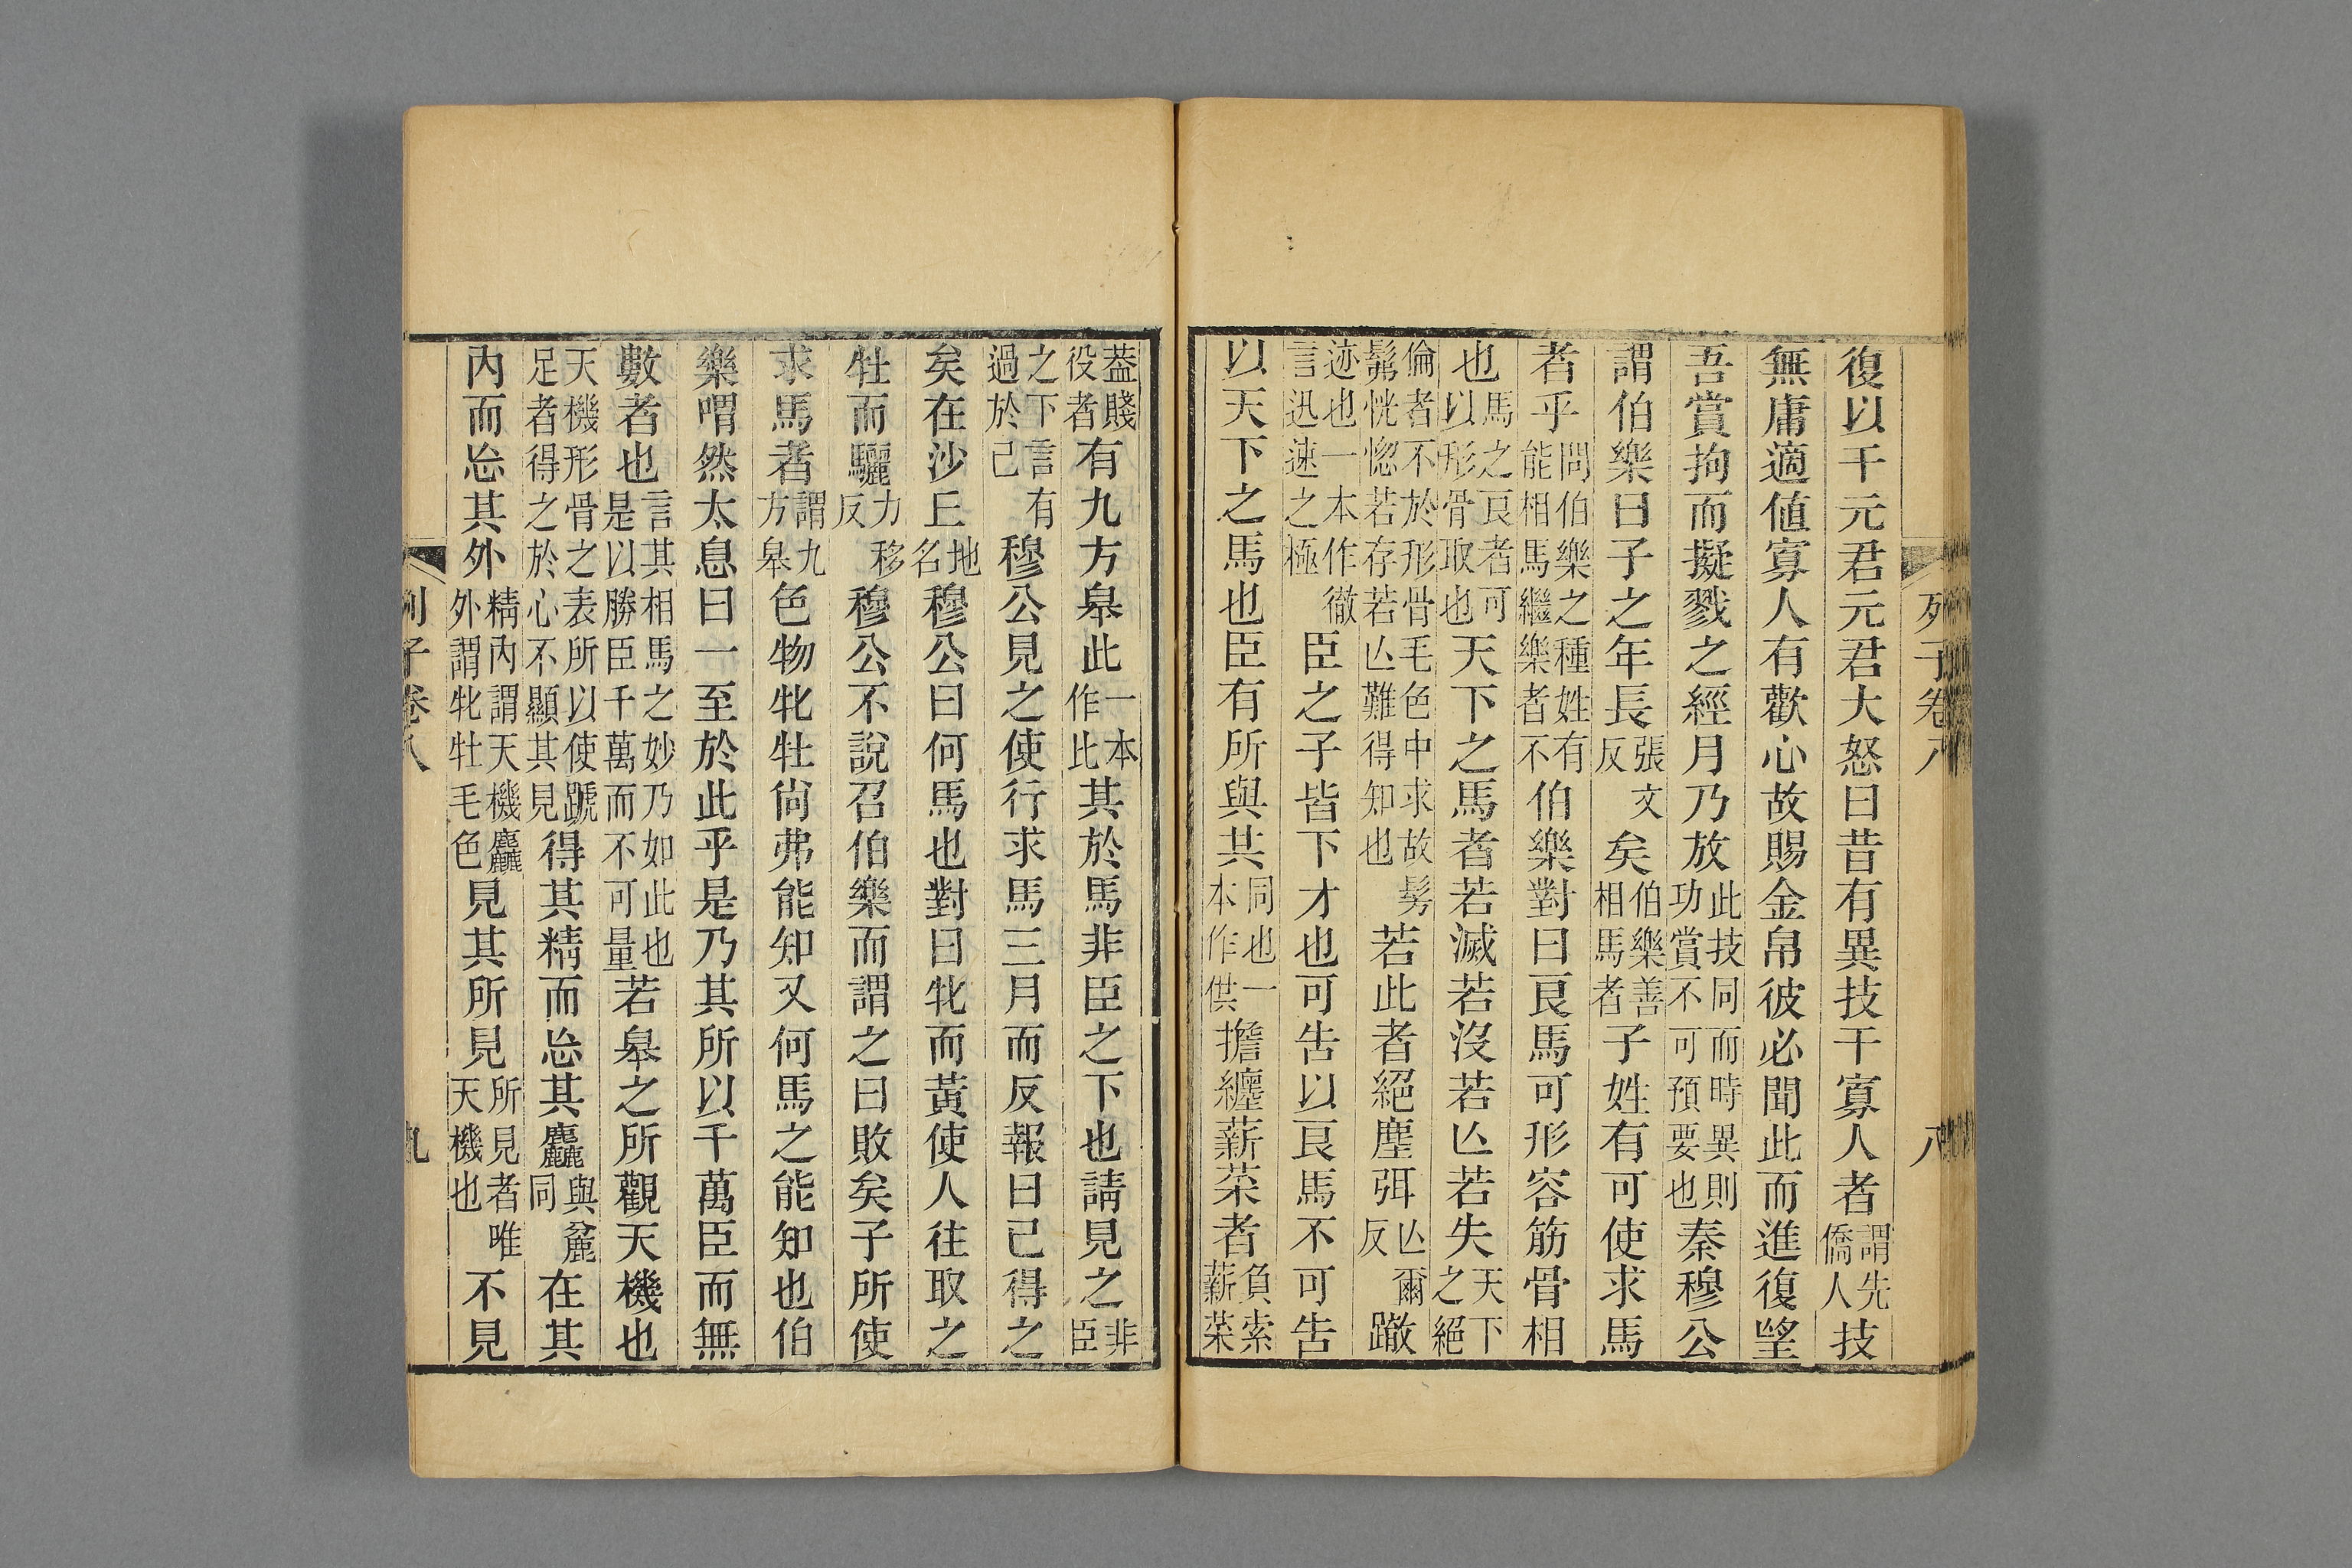 列子卷八　八
復以千元君元君大怒曰昔有異技干寡人者謂先僑人技
無庸適値寡人有歡心故賜金帛彼必聞此而進復朢
吾賞拘而擬戮之經月乃放此技同而時異則功賞不可預要也秦穆公
謂伯樂曰子之年長張文反矣伯樂善相馬者子姓有可使求馬
者乎問伯樂之種姓有能相馬繼樂者不伯樂對曰良馬可形容筋骨相
也馬之良者可以形骨取也天下之馬者若滅若沒若亾若失天下之絕
倫者不於形骨毛色中求故髣髴恍惚若存若亾難得知也若此者絕塵弭亾爾反蹾
迹也一本作徹言迅速之極臣之子皆下才也可告以良馬不可告
以天下之馬也臣有所與共同也一本作供擔纏薪菜者負索薪菜
葢賤役者有九方皋此一本作比其於馬非臣之下也請見之非臣
之下言有過於己穆公見之使行求馬三月而反報曰已得之
矣在沙丘地名穆公曰何馬也對曰牝而黃使人往取之
牡而驪力移反穆公不說召伯樂而謂之曰敗矣子所使
求馬者謂九方皋色物牝牡尙弗能知又何馬之能知也伯
樂喟然太息曰一至於此乎是乃其所以千萬臣而無
數者也言其相馬之妙乃如此也是以勝臣千萬而不可量若皋之所觀天機也
天機形骨之表所以使蹏足者得之於心不顯其見得其精而忘其麤與麄同在其
內而忘其外精內謂天機麤外謂牝牡毛色見其所見所見者唯天機也不見
列子卷八　九